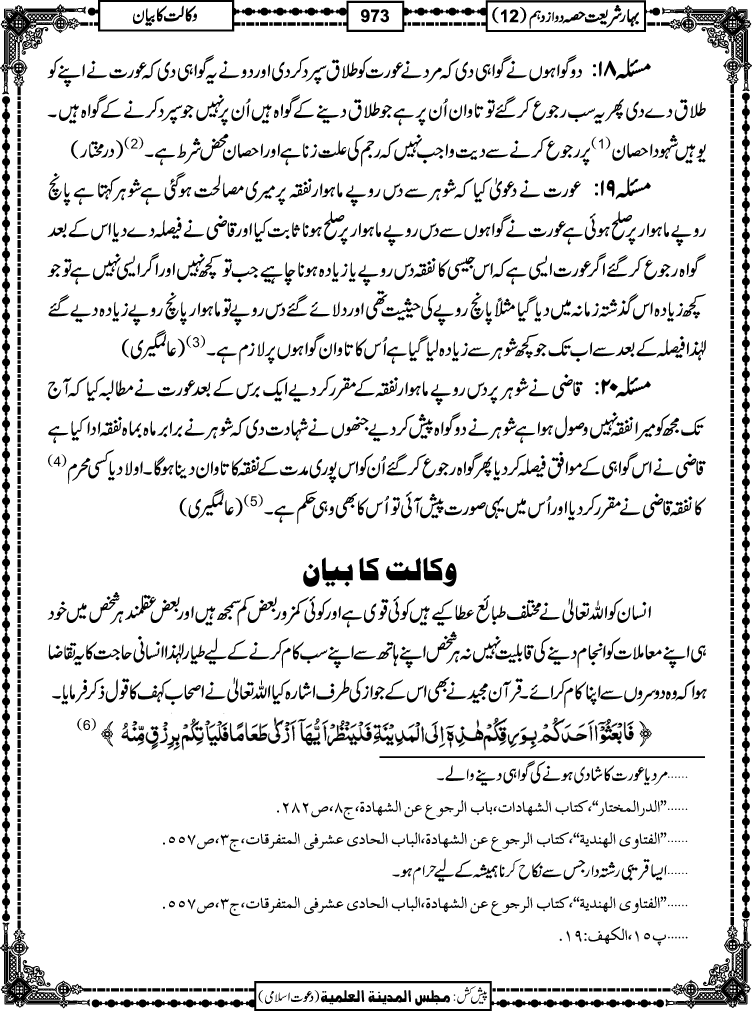 بہار شریعت حصہ دوازدہم (12)
973
وکالت کا بیان
مسئلہ ۱۸: دو گواہوں نے گواہی دی کہ مرد نے عورت کو طلاق سپرد کر دی اور دو نے یہ گواہی دی کہ عورت نے اپنے کو
طلاق دے دی پھر یہ سب رجوع کر گئے تو تاوان اُن پر ہے جو طلاق دینے کے گواہ ہیں اُن پر نہیں جو سپرد کرنے کے گواہ ہیں۔
یوہیں شہود احصان (1) پر رجوع کرنے سے دیت واجب نہیں کہ رجم کی علت زنا ہے اور احصان محض شرط ہے۔ (2) (درمختار)
مسئلہ ۱۹: عورت نے دعویٰ کیا کہ شوہر سے دس روپے ماہوار نفقہ پر میری مصالحت ہوگئی ہے شوہر کہتا ہے پانچ
روپے ماہوار پر صلح ہوئی ہے عورت نے گواہوں سے دس روپے ماہوار پر صلح ہونا ثابت کیا اور قاضی نے فیصلہ دے دیا اس کے بعد
گواہ رجوع کر گئے اگر عورت ایسی ہے کہ اس جیسی کا نفقہ دس روپے یا زیادہ ہونا چاہیے جب تو کچھ نہیں اور اگر ایسی نہیں ہے تو جو
کچھ زیادہ اس گذشتہ زمانہ میں دیا گیا مثلاً پانچ روپے کی حیثیت تھی اور دلائے گئے دس روپے تو ماہوار پانچ روپے زیادہ دیے گئے
لہٰذا فیصلہ کے بعد سے اب تک جو کچھ شوہر سے زیادہ لیا گیا ہے اُس کا تاوان گواہوں پر لازم ہے۔ (3) (عالمگیری)
مسئلہ ۲۰: قاضی نے شوہر پر دس روپے ماہوار نفقہ کے مقرر کر دیے ایک برس کے بعد عورت نے مطالبہ کیا کہ آج
تک مجھ کو میرا نفقہ نہیں وصول ہوا ہے شوہر نے دو گواہ پیش کر دیے جنھوں نے شہادت دی کہ شوہر نے برابر ماہ بماہ نفقہ ادا کیا ہے
قاضی نے اس گواہی کے موافق فیصلہ کر دیا پھر گواہ رجوع کر گئے اُن کو اس پوری مدت کے نفقہ کا تاوان دینا ہوگا۔ اولاد یا کسی محرم (4)
کا نفقہ قاضی نے مقرر کر دیا اور اُس میں یہی صورت پیش آئی تو اُس کا بھی وہی حکم ہے۔ (5) (عالمگیری)
وکالت کا بیان
انسان کو اللہ تعالٰی نے مختلف طبائع عطا کیے ہیں کوئی قوی ہے اور کوئی کمزور بعض کم سمجھ ہیں اور بعض عقلمند ہر شخص میں خود
ہی اپنے معاملات کو انجام دینے کی قابلیت نہیں نہ ہر شخص اپنے ہاتھ سے اپنے سب کام کرنے کے لیے طیار لہٰذا انسانی حاجت کا یہ تقاضا
ہوا کہ وہ دوسروں سے اپنا کام کرائے۔ قرآن مجید نے بھی اس کے جواز کی طرف اشارہ کیا اللہ تعالٰی نے اصحاب کہف کا قول ذکر فرمایا۔
﴿ فَابْعَثُوْۤا اَحَدَكُمْ بِوَرِقِكُمْ هٰذِهٖۤ اِلَى الْمَدِيْنَةِ فَلْيَنْظُرْ اَيُّهَاۤ اَزْكٰى طَعَامًا فَلْيَاْتِكُمْ بِرِزْقٍ مِّنْهُ ﴾ (6)
......مرد یا عورت کا شادی ہونے کی گواہی دینے والے۔
......"الدرالمختار"، کتاب الشھادات، باب الرجوع عن الشھادة، ج۸، ص۲۸۲.
......"الفتاوی الھندیة"، کتاب الرجوع عن الشھادة، الباب الحادی عشر فی المتفرقات، ج۳، ص۵۵۷.
......ایسا قریبی رشتہ دار جس سے نکاح کرنا ہمیشہ کے لیے حرام ہو۔
......"الفتاوی الھندیة"، کتاب الرجوع عن الشھادة، الباب الحادی عشر فی المتفرقات، ج۳، ص۵۵۷.
......پ۱۵، الکھف: ۱۹.
پیش کش: مجلس المدینة العلمیة (دعوت اسلامی)